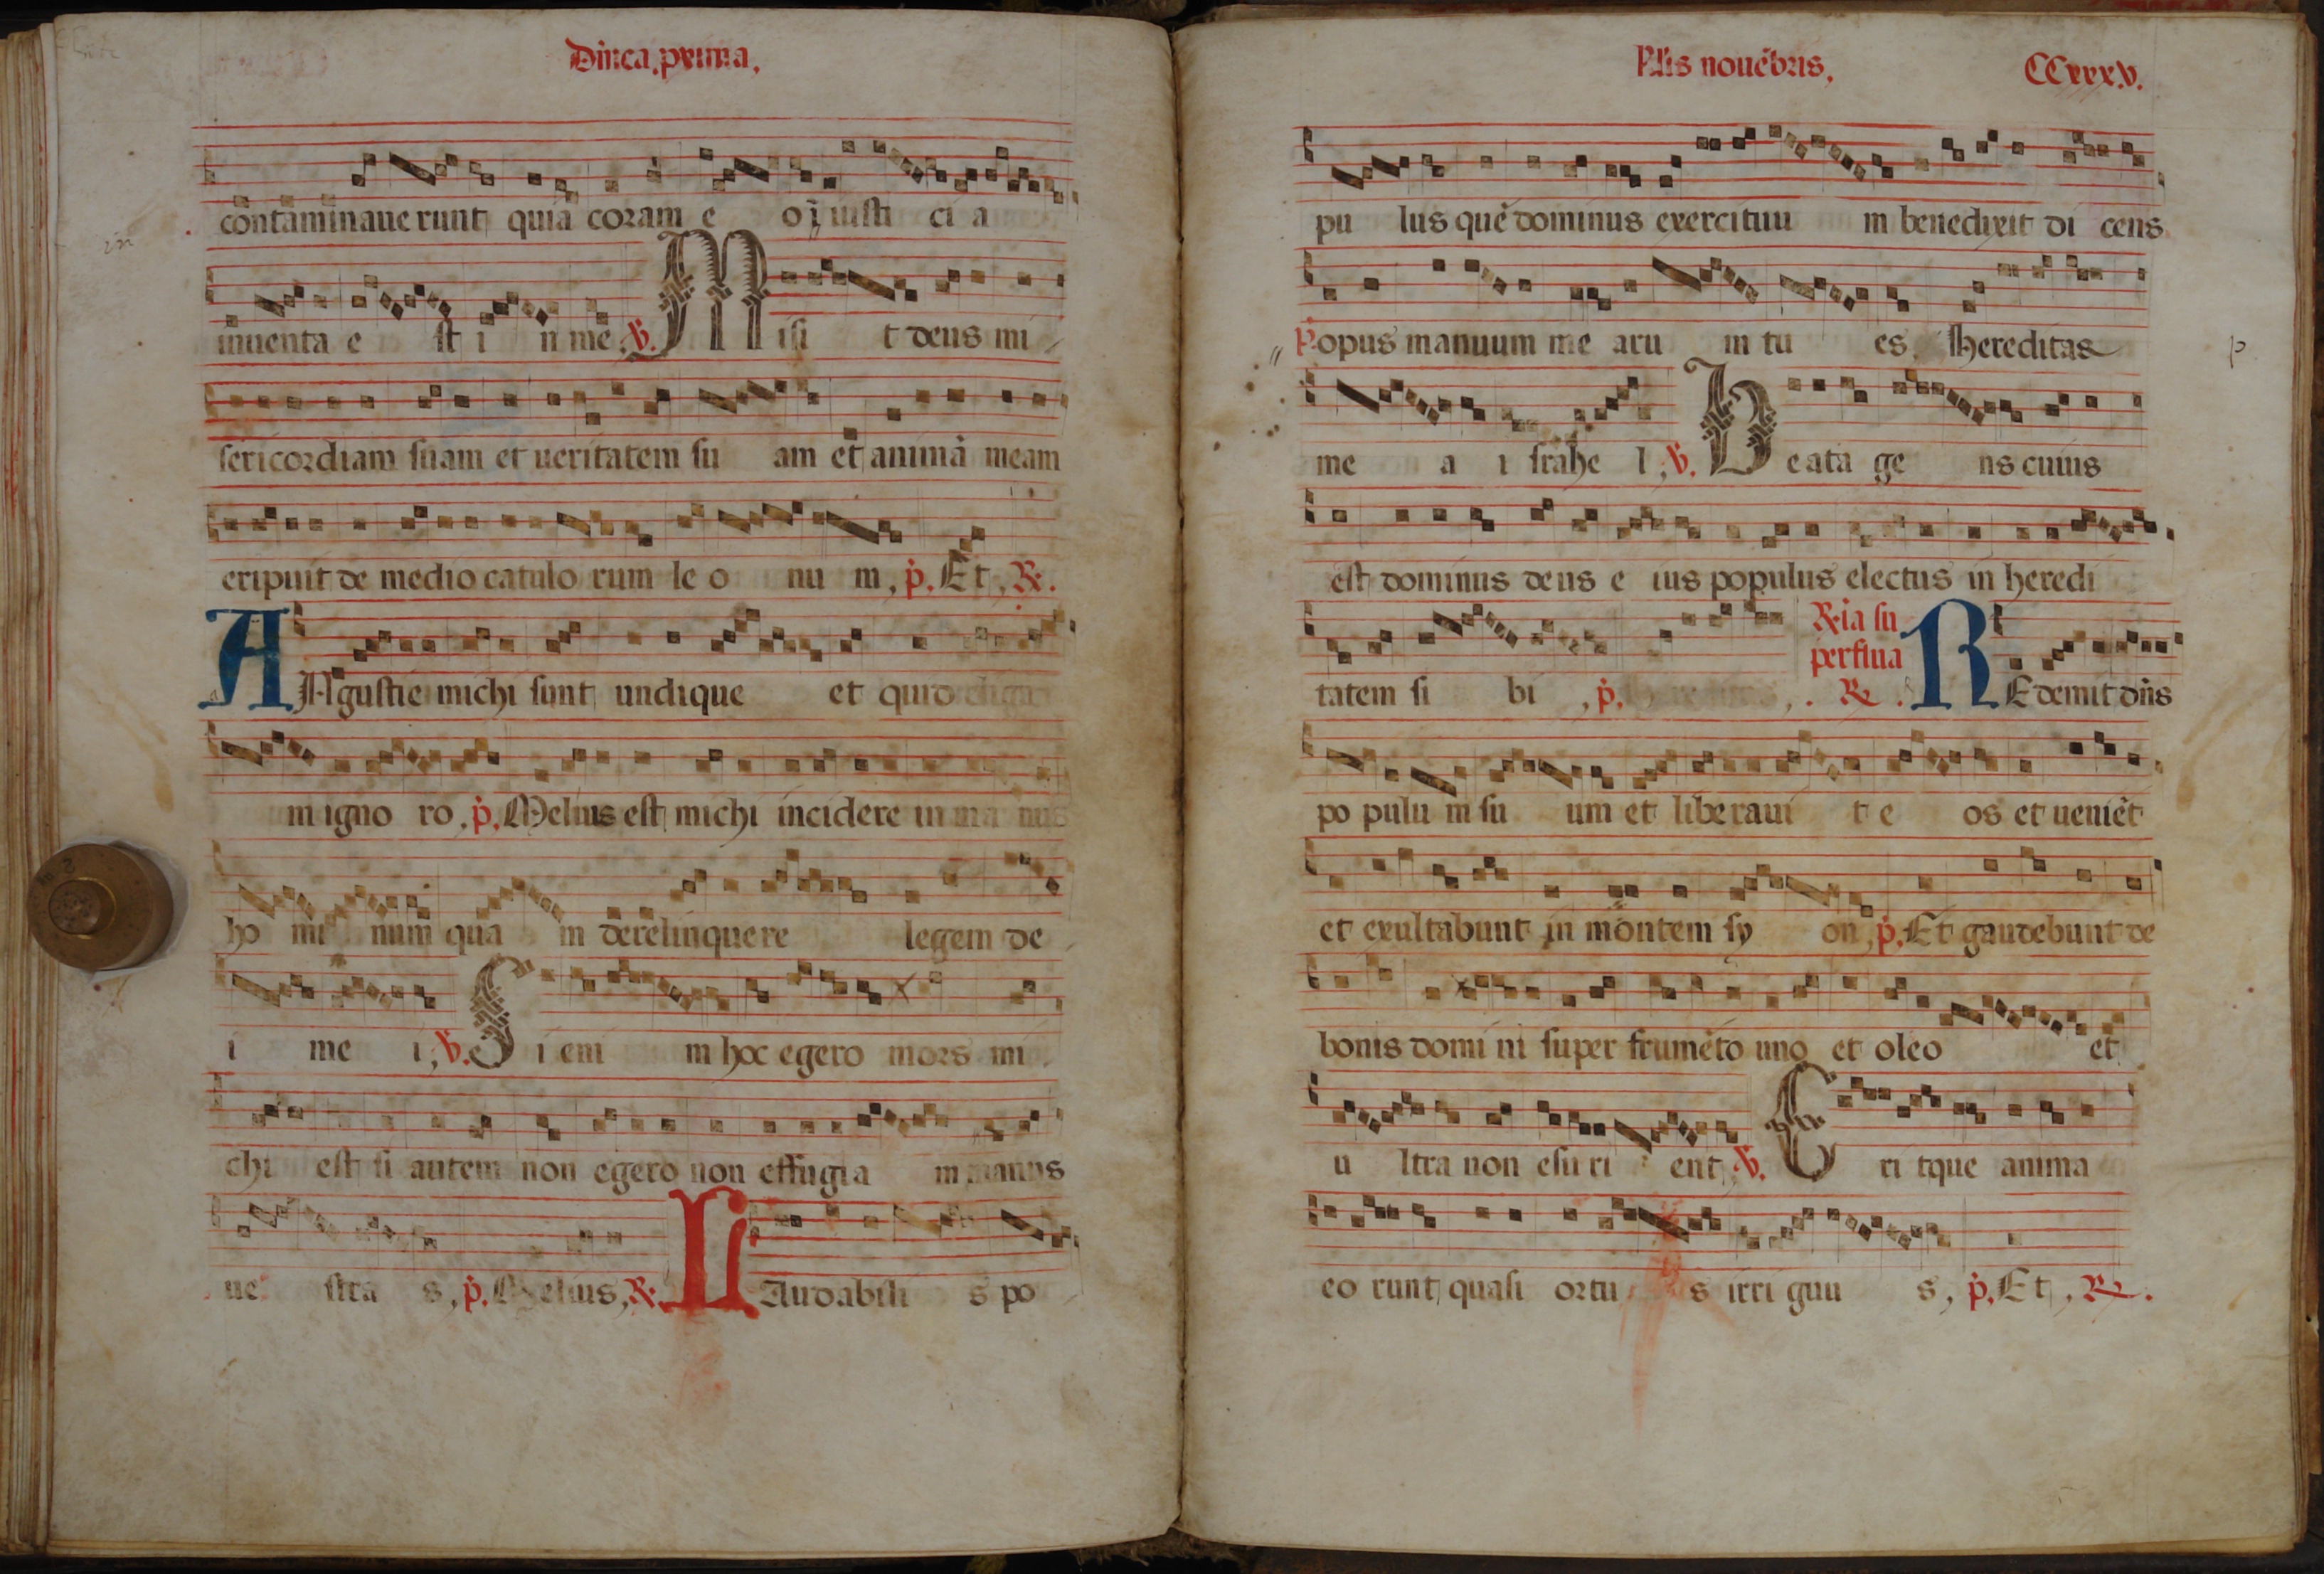 Dn̄ica. prima.
contaminaue runt quia coram e o ī iusti ci a
inuenta e st i n me. ℣. Misi t deus mi
sericordiam suam et ueritatem su am et animā meam
eripuit de medio catulo rum le o nu m, p̄. Et, ℟.
ANgustie michi sunt undique et quid eliga
m igno ro, p̄. Melius est michi incidere in ma nus
ho mi num qua m derelinquere legem de
i me i, ℣. Si eni m hoc egero mors mi
chi est si autem non egero non effugia m manus
ue stra s, p̄. Melius, ℟. LAudabili s po
Kl̄is nouēbris,
CCxxxv.
pu lus quē dominus exercituu m benedixit di cens
p̄. opus manuum me aru m tu es hereditas
p
me a i srahe l, ℣. Beata ge ns cuius
est dominus deus e ius populus electus in heredi
tatem si bi, p̄. hereditas, ℟.
℟ia su
perflua
REdemit dn̄s
po pulu m su um et liberaui t e os et ueniēt
et exultabunt in montem sy on, p̄. Et gaudebunt de
bonis domi ni super frumēto uino et oleo et
u ltra non esu ri ent, ℣. Eri tque anima
eo runt quasi ortu s irri guu s, p̄. Et, ℟.